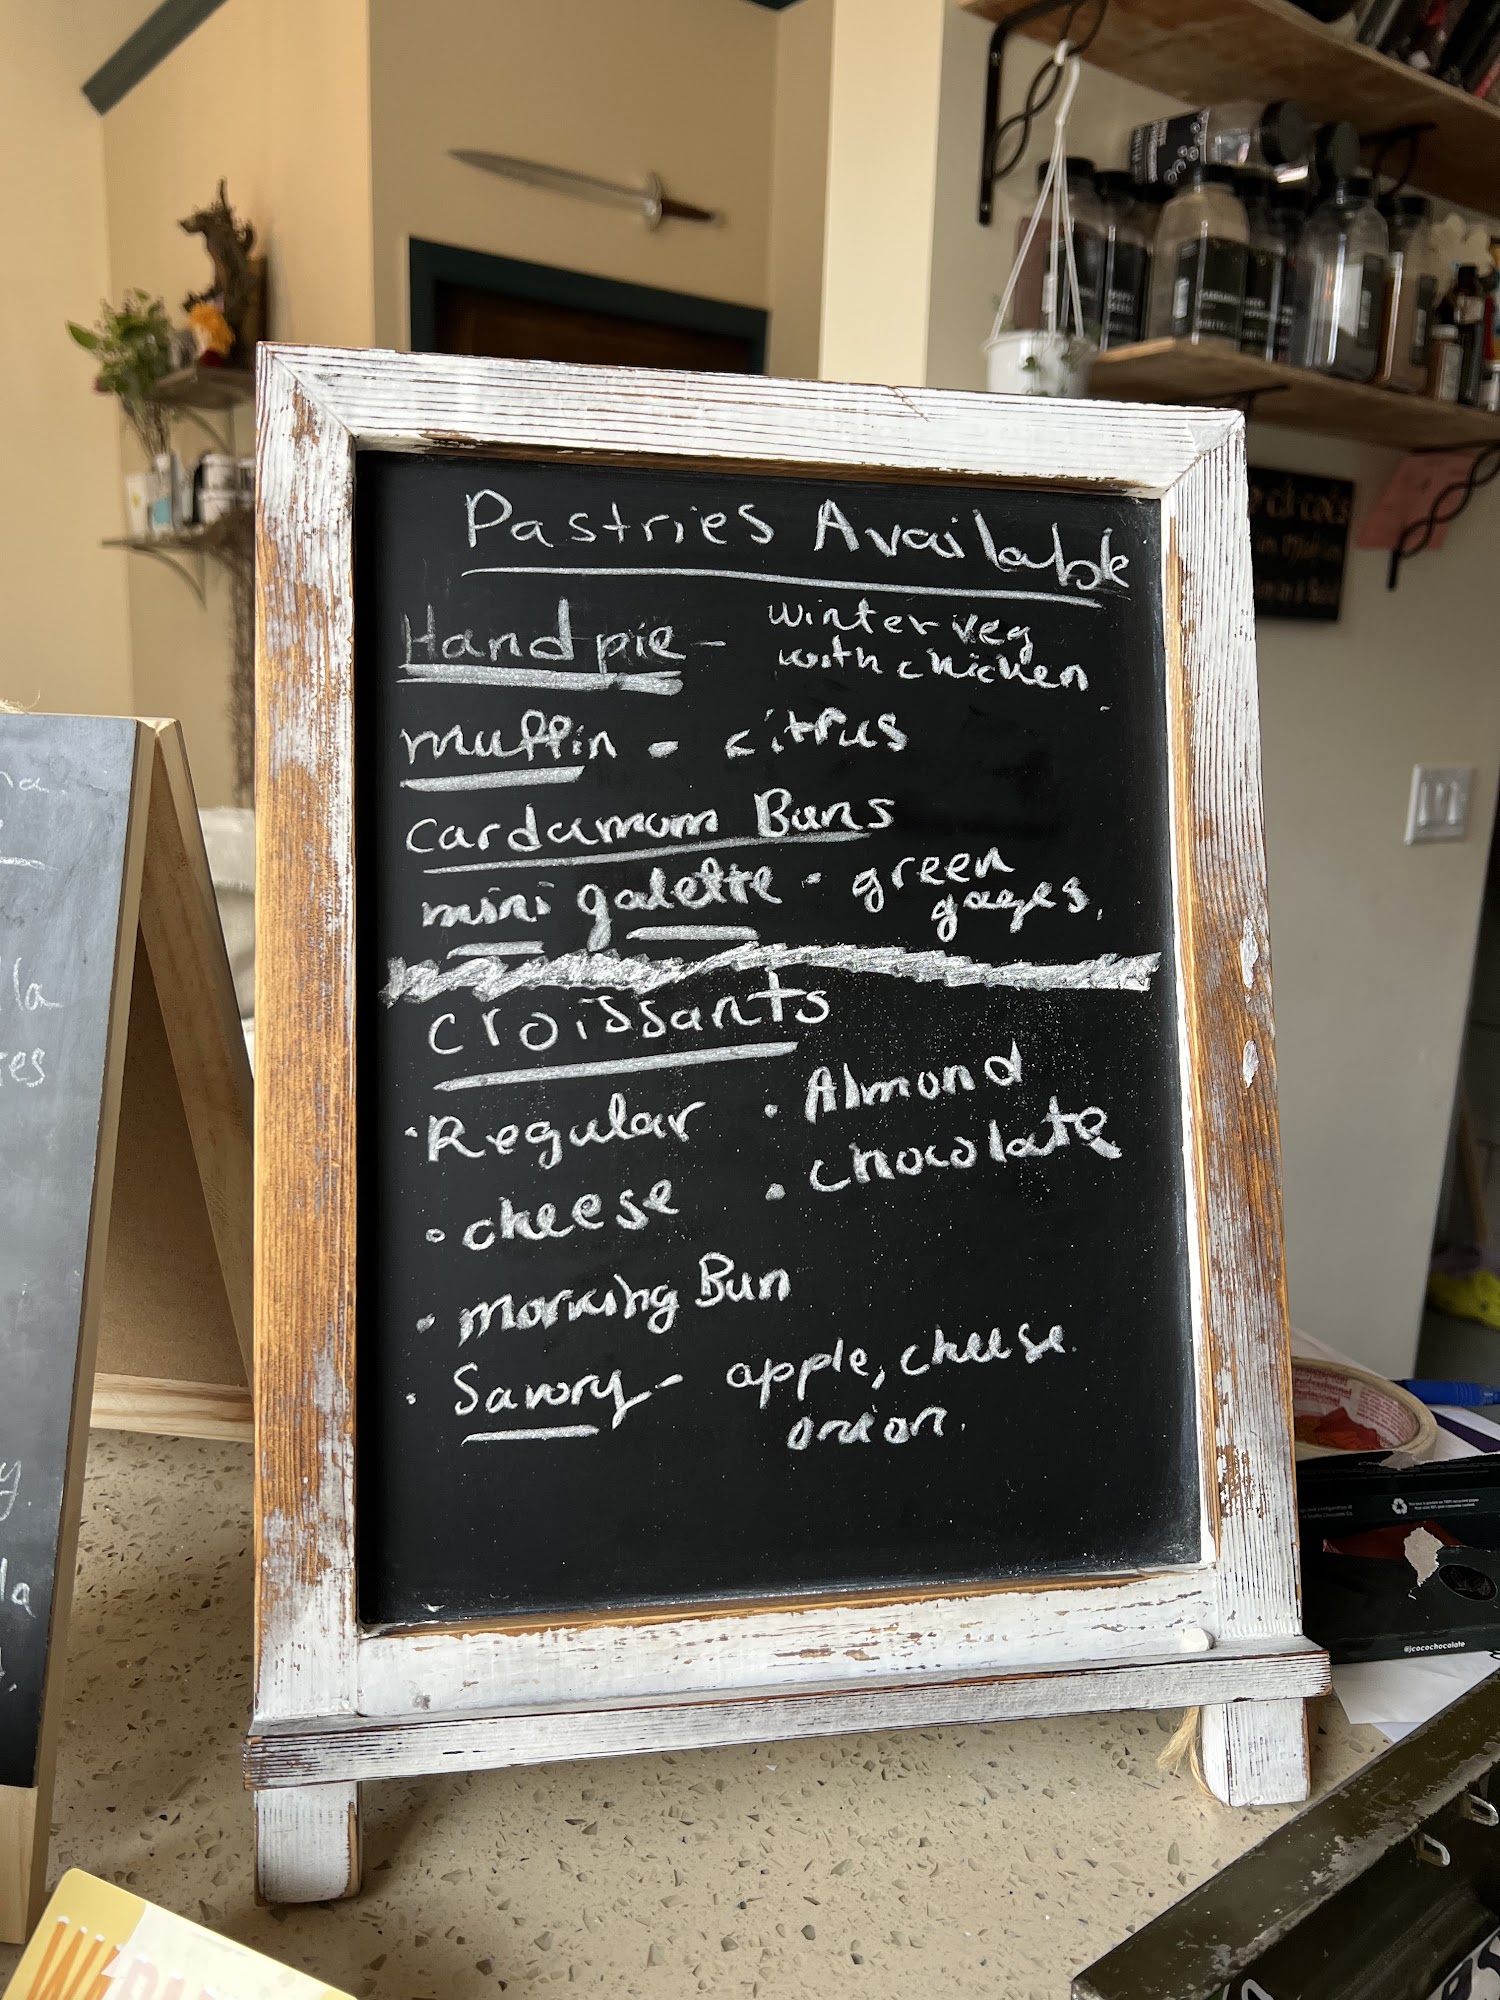 Pastries Available
Hand pie - winter veg
with chicken
muffin - citrus
cardamom Buns
mini galette - green
gages.
Croissants
· Regular · Almond
· cheese · chocolate
· morning Bun
· Savory - apple, cheese.
onion.
@jcocochocolate
la